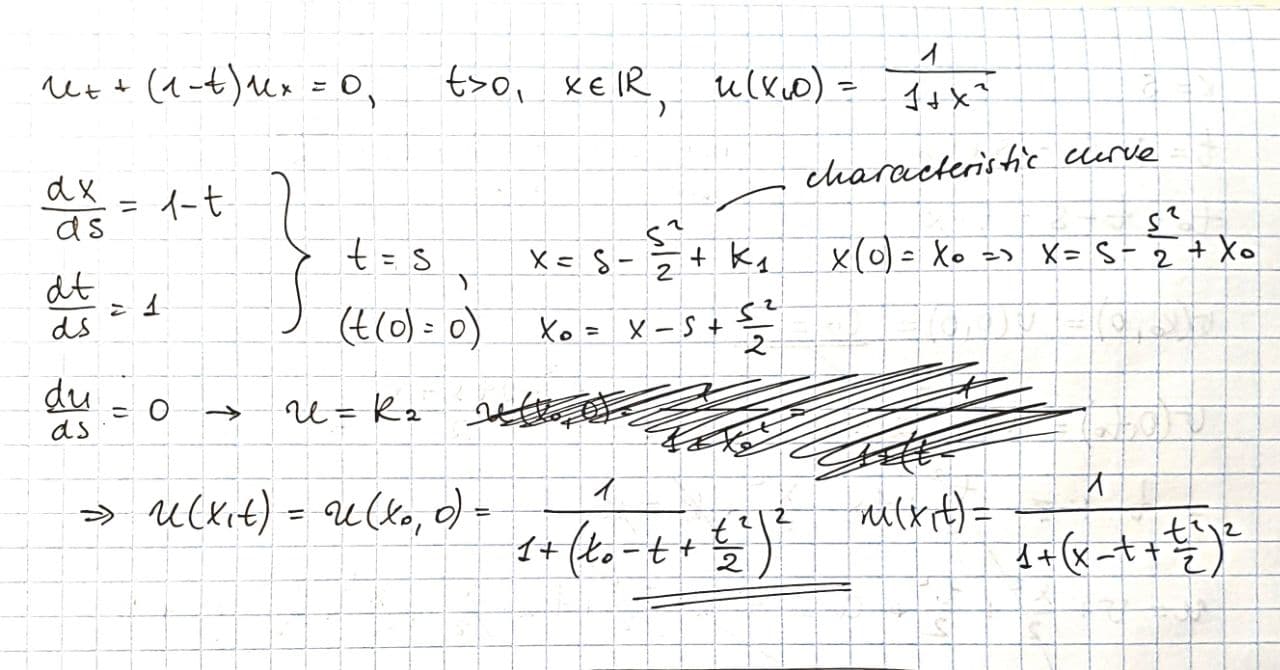 u_t + (1-t)u_x = 0, t>0, x∈ℝ, u(x,0) = 1/(1+x²)
characteristic curve
dx/ds = 1-t
t = s, x = s - s²/2 + k₁ x(0) = x₀ => x = s - s²/2 + x₀
dt/ds = 1
(t(0)=0) x₀ = x - s + s²/2
du/ds = 0 → u = k₂
=> u(x,t) = u(x₀,0) = 1/(1+(x₀-t+t²/2)²) u(x,t) = 1/(1+(x-t+t²/2)²)